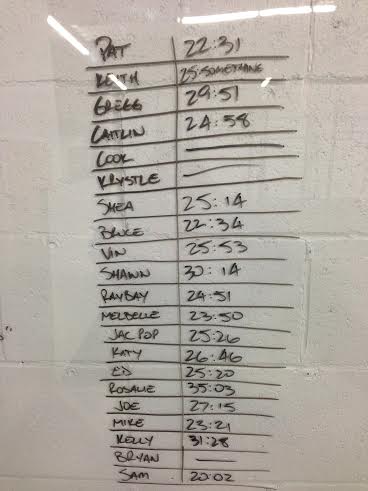 PAT 22:31
KEITH 25:SOMETHING
GREGG 29:51
CAITLIN 24:58
COOK —
KRYSTLE —
SHEA 25:14
BRUCE 22:34
VIN 25:53
SHAWN 30:14
RAYBAY 24:51
MELBELLE 23:50
JAC POP 25:26
KATY 26:46
ED 25:20
ROSALIE 35:03
JOE 27:15
MIKE 23:21
KELLY 31:28
BRYAN —
SAM 20:02